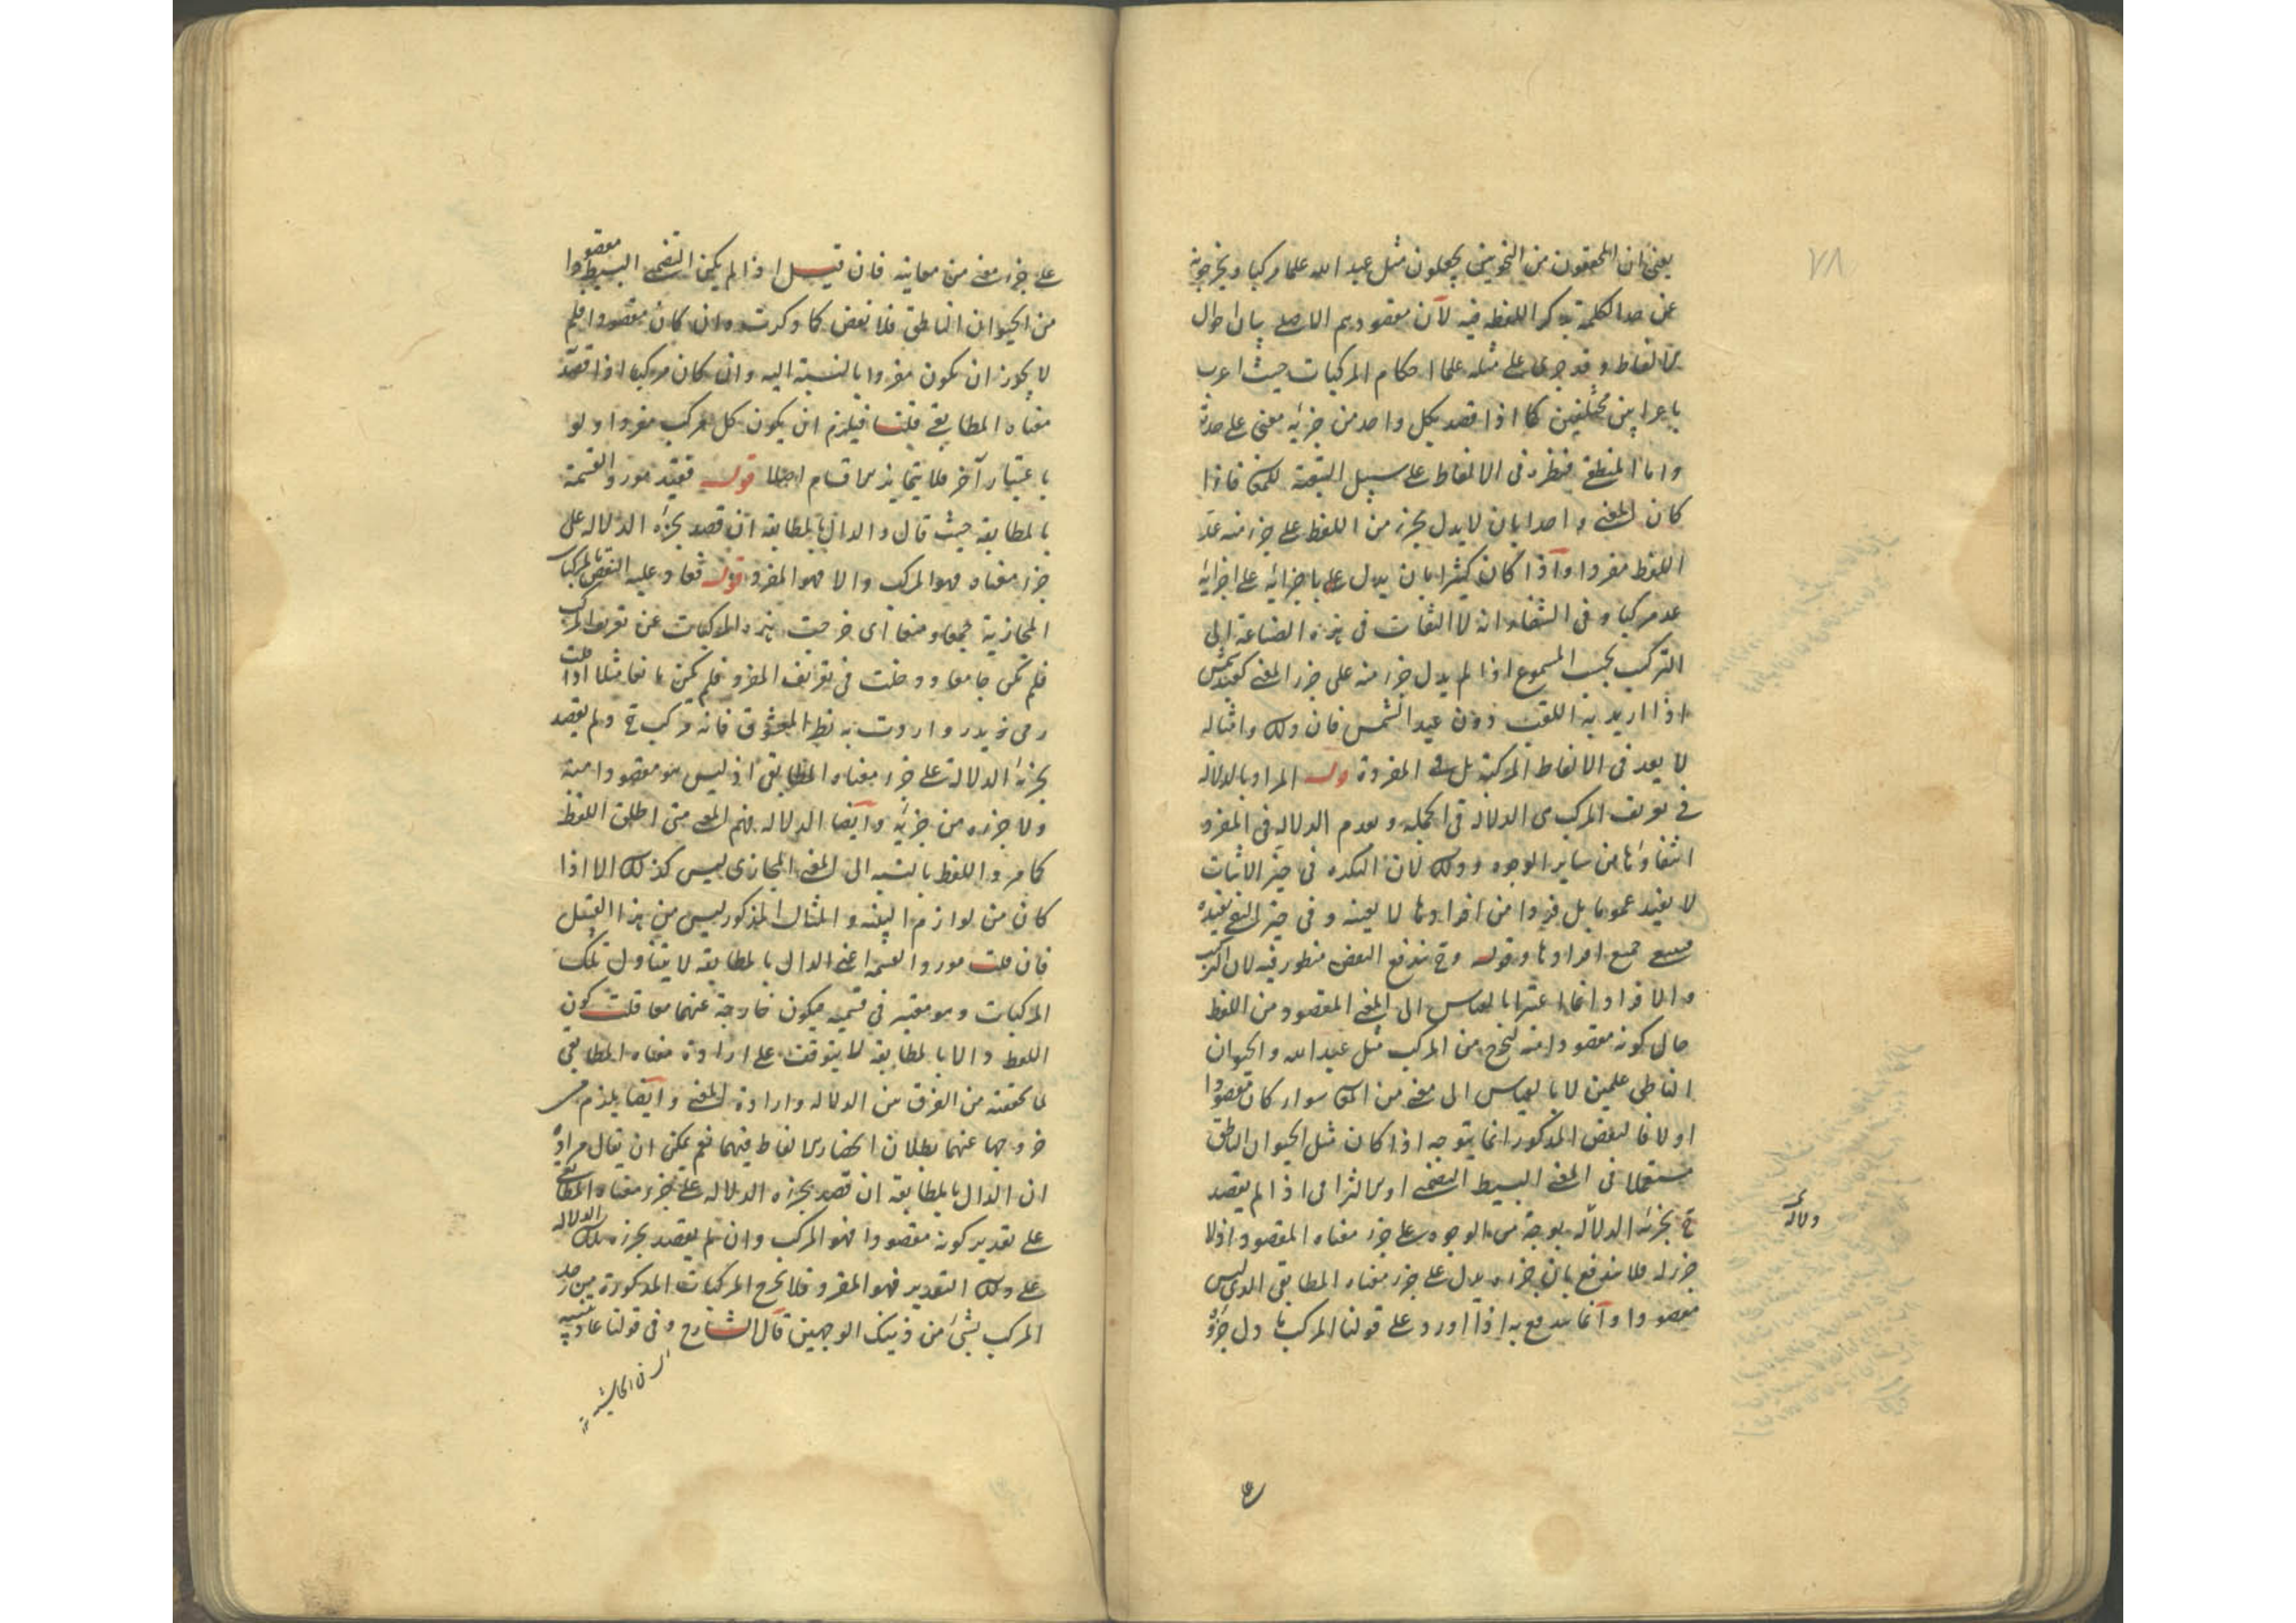 ٧٨
يعنى ان المحققون من النحويين يجعلون مثل عبد الله علما مركبا ويخرجونه
عن حد الكلمة بذكر اللفظه فيه لان مقصودهم الاصلى بيان احوال
الالفاظ وقد جرى على مثله علما احكام المركبات حيث اعرب
باعرابين مختلفين كما اذا قصد بكل واحد من جزئيه معنى على حدة
واما المنطقى فنظره فى الالفاظ على سبيل التبعية للمعنى فاذا
كان المعنى واحدا بان لا يدل بجزء من اللفظ على جزء منه عد
اللفظ مفردا واذا كان كثيرا بان يدل على باجزائه على اجزائه
عد مركبا وفى الشفاء انه لا التفات فى هذه الصناعة الى
التركيب بحسب المسموع اذا لم يدل جزء منه على جزء المعنى كعبد شمس
اذا اريد به اللقب دون عبد الشمس فان ذلك وامثاله
لا يعد فى الالفاظ المركبة بل فى المفردة قوله المراد بالدلالة
فى تعريف المركب هى الدلالة فى الجملة وبعدم الدلالة فى المفرد
انتفاؤها من ساير الوجوه وذلك لان النكرة فى حيز الاثبات
لا يفيد عموما بل فردا من افرادها لا بعينه وفى حيز النفى يفيده
جميع افرادها وقوله وح يندفع النقض منظور فيه لان التركيب
والافراد انما اعتبرا بالقياس الى المعنى المقصود من اللفظ
حال كونه مقصودا منه ليخرج من المركب مثل عبد الله والحيوان
الناطق علمين لا بالقياس الى معنى من المعانى سواء كان مقصودا
اولا فالنقض المذكور انما يتوجه اذا كان مثل الحيوان الناطق
مستعملا فى المعنى البسيط التضمنى او الالتزامى اذا لم يقصد
ح بجزئه الدلالة بوجه من الوجوه على جزء معناه المقصود اذ لا
جزء له فلا يندفع بان جزءه يدل على جزء معناه المطابقى الذى ليس
مقصودا وانما يندفع به اذا اورد على قولنا المركب ما دل جزؤه
دلالة
على
على جزء معنى من معانيه فان قيل اذا لم يكن التضمنى البسيط مقصودا
من الحيوان الناطق فلا نقض كما ذكرت وان كان مقصودا فلم
لا يجوز ان يكون مفردا بالنسبة اليه وان كان مركبا اذا قصد
معناه المطابقى قلت فيلزم ان يكون كل مركب مفردا ولو
باعتبار آخر فلا يتمايز الاقسام اصلا قوله فقيد مورد القسمة
بالمطابقة حيث قال والدال بالمطابقة ان قصد بجزئه الدلالة على
جزء معناه فهو المركب والا فهو المفرد قوله فعاد عليه النقض بالمركبات
المجازية جمعا ومنعا اى خرجت هذه المركبات عن تعريف المركب
فلم يكن جامعا ودخلت فى تعريف المفرد فلم يكن مانعا مثلا اذا قلت
رمى زيد واردت به نظر المعشوق فانه مركب ح ولم يقصد
بجزئه الدلالة على جزء معناه المطابقى اذ ليس هو مقصودا منه
ولا جزءه من جزئيه وايضا الدلالة فهم المعنى متى اطلق اللفظ
كما مر واللفظ بالنسبة الى المعنى المجازى ليس كذلك الا اذا
كان من لوازم البينة والمثال المذكور ليس من هذا القبيل
فان قلت مورد القسمة اعنى الدال بالمطابقة لا يتناول تلك
المركبات وهو معتبر فى قسميه فيكون خارجة عنهما معا قلت كون
اللفظ دالا بالمطابقة لا يتوقف على ارادة معناه المطابقى
لما تحققته من الفرق بين الدلالة وارادة المعنى وايضا يلزم من
خروجها عنهما بطلان انحصار الالفاظ فيهما نعم يمكن ان يقال مراده
ان الدال بالمطابقة ان قصد بجزئه الدلالة على جزء معناه المطابقى
على تقدير كونه مقصودا فهو المركب وان لم يقصد بجزئه تلك الدلالة
على ذلك التقدير فهو المفرد فلا يخرج المركبات المذكورة من حد
المركب بشئ من ذينك الوجهين قال الشارح وفى قولنا عادته